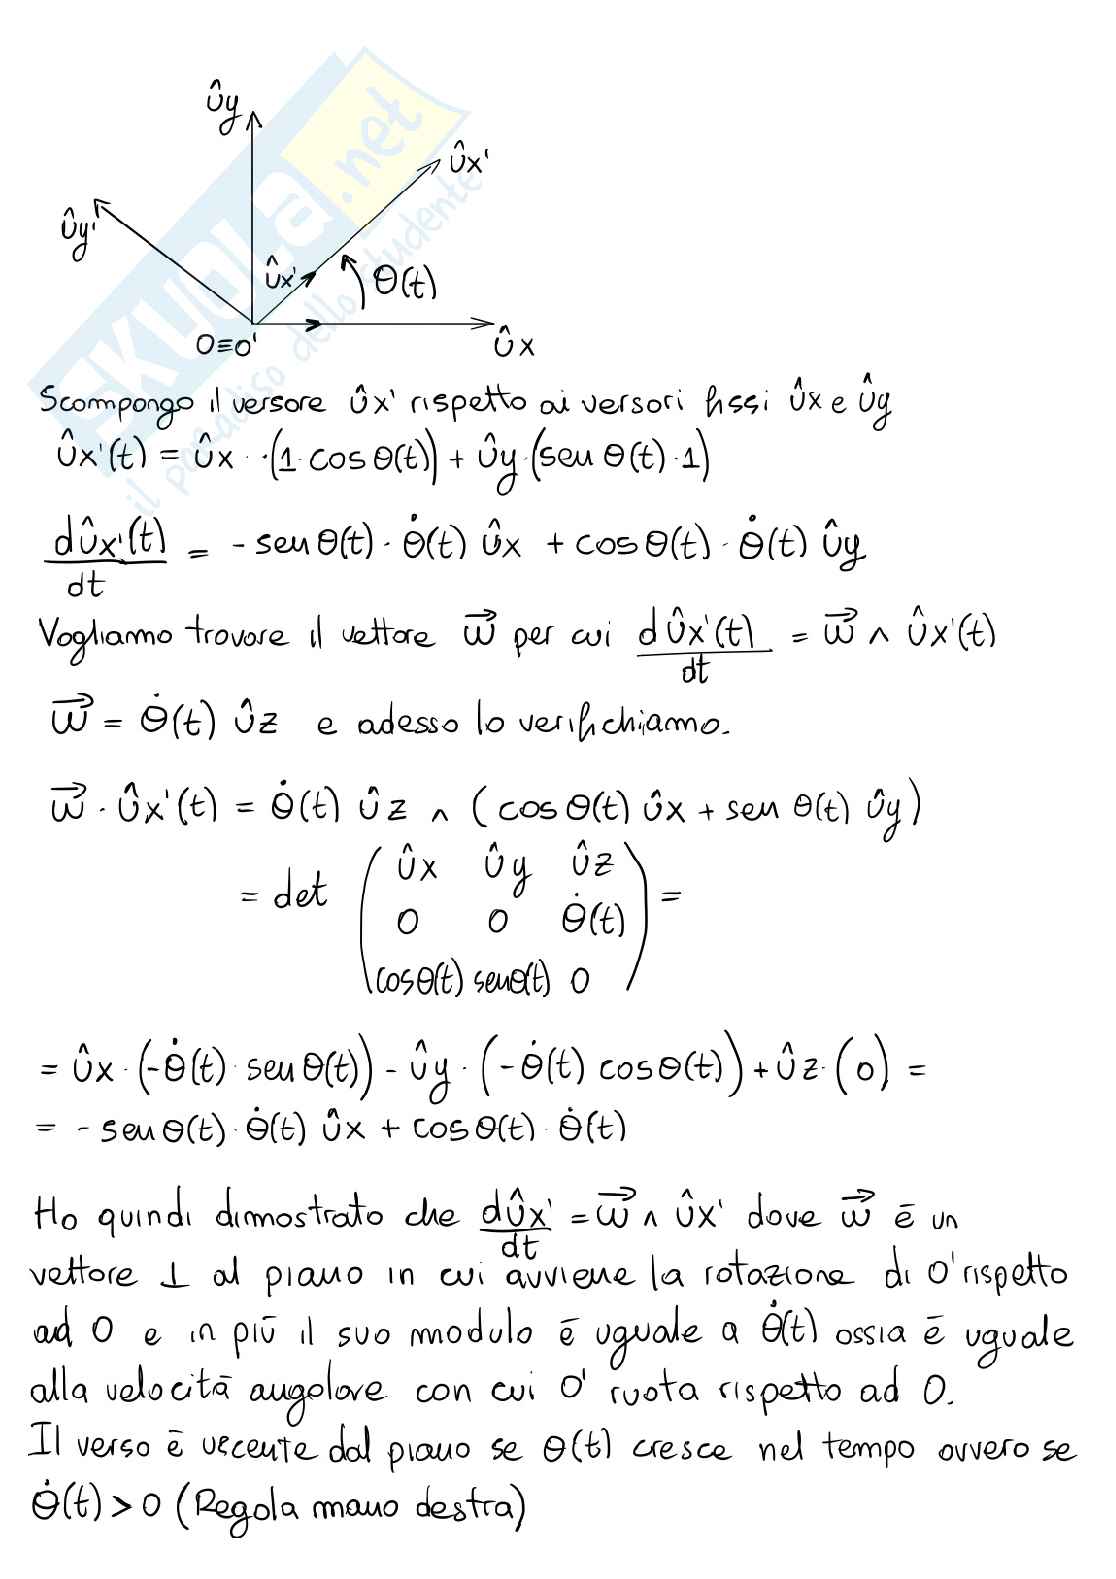 SKUOLA.net
il paradiso dello studente
ûy
ûx'
ûy'
ûx'
θ(t)
O≡O'
ûx
Scompongo il versore ûx' rispetto ai versori fissi ûx e ûy
ûx'(t) = ûx · ·(1 · cos θ(t)) + ûy · (sen θ(t) · 1)
dûx'(t)/dt = - sen θ(t) · θ̇(t) ûx + cos θ(t) · θ̇(t) ûy
Vogliamo trovare il vettore w⃗ per cui dûx'(t)/dt = w⃗ ∧ ûx'(t)
w⃗ = θ̇(t) ûz e adesso lo verifichiamo.
w⃗ · ûx'(t) = θ̇(t) ûz ∧ (cos θ(t) ûx + sen θ(t) ûy)
= det ( ûx ûy ûz
0 0 θ̇(t)
cosθ(t) senθ(t) 0 ) =
= ûx · (-θ̇(t) · sen θ(t)) - ûy · (-θ̇(t) cos θ(t)) + ûz · (0) =
= - sen θ(t) · θ̇(t) ûx + cos θ(t) · θ̇(t)
Ho quindi dimostrato che dûx'/dt = w⃗ ∧ ûx' dove w⃗ è un
vettore ⊥ al piano in cui avviene la rotazione di O' rispetto
ad O e in più il suo modulo è uguale a θ̇(t) ossia è uguale
alla velocità angolare con cui O' ruota rispetto ad O.
Il verso è uscente dal piano se θ(t) cresce nel tempo ovvero se
θ̇(t) > 0 (Regola mano destra)